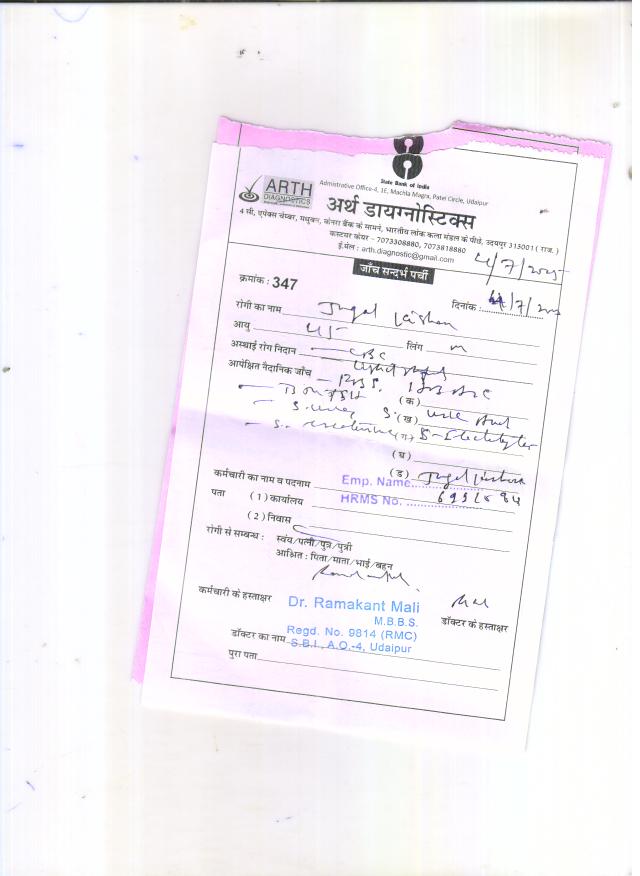 State Bank of India
Admistrative Office-4, 1E, Machla Magra, Patel Circle, Udaipur
ARTH
DIAGNOSTICS
अर्थ डायग्नोस्टिक्स
4 सी, एपेक्स चेम्बर, मधुबन, केनरा बैंक के सामने, भारतीय लोक कला मंडल के पीछे, उदयपुर 313001 ( राज. )
कस्टमर केयर - 7073308880, 7073818880
ई.मेल : arth.diagnostic@gmail.com
4/7/2025
जाँच सन्दर्भ पर्ची
क्रमांक : 347
दिनांक : 4/7/202
रोगी का नाम Jugal Kishor
आयु 45 लिंग m
अस्थाई रोग निदान CBC
आपेक्षित नैदानिक जाँच RBS.
(क)
S. Urea (ख) S. Uric Acid
S. Creatinine (ग) S-Electrolytes
(घ)
(ड) Jugal Kishor
कर्मचारी का नाम व पदनाम Emp. Name
पता (1) कार्यालय HRMS No.
(2) निवास
रोगी से सम्बन्ध : स्वंय/पत्नी/पुत्र/पुत्री
आश्रित : पिता/माता/भाई/बहन
कर्मचारी के हस्ताक्षर
Dr. Ramakant Mali
M.B.B.S.
डॉक्टर के हस्ताक्षर
Regd. No. 9814 (RMC)
डॉक्टर का नाम S.B.I., A.O.-4, Udaipur
पुरा पता